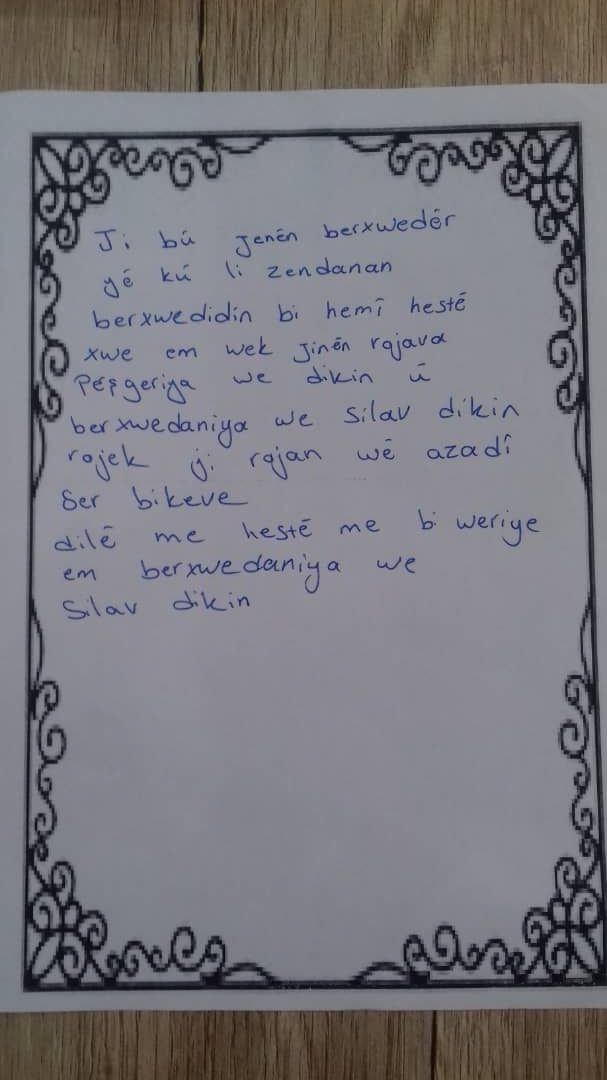 Ji bû jenên berxwedêr
yê kû li zendanan
berxwedidin bi hemî hestê
xwe em wek Jinên rojava
Pêşgeriya we dikin û
berxwedaniya we Silav dikin
rojek ji rojan wê azadî
Ser bikeve
dilê me hestê me bi weriye
em berxwedaniya we
Silav dikin